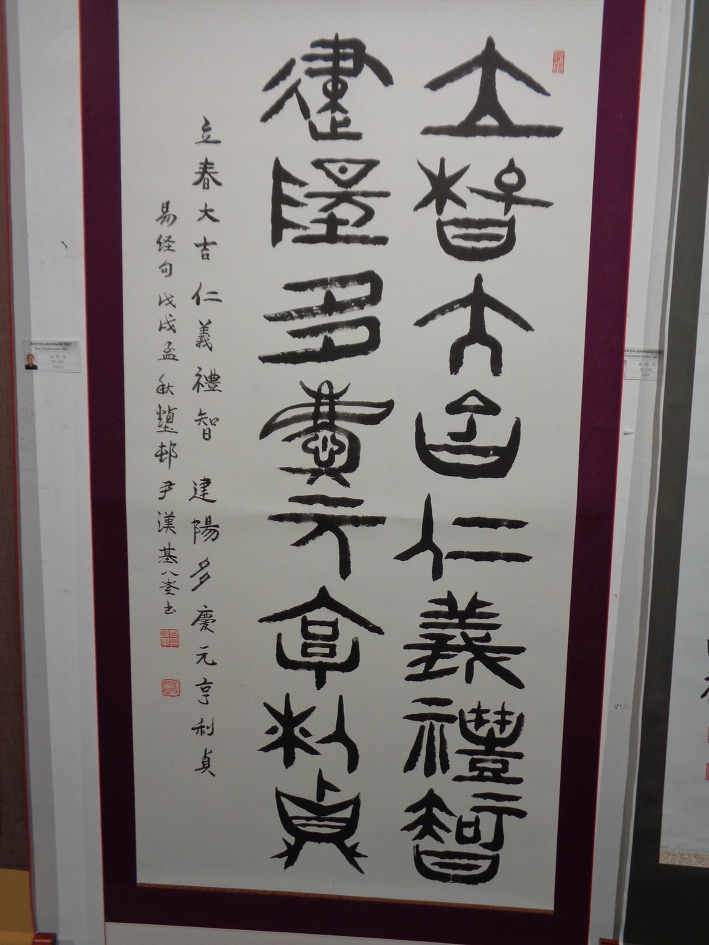 立春大吉仁義禮智
建陽多慶元亨利貞
立春大吉 仁義禮智 建陽多慶元亨利貞
易經句 戊戌孟秋 邨尹漢基